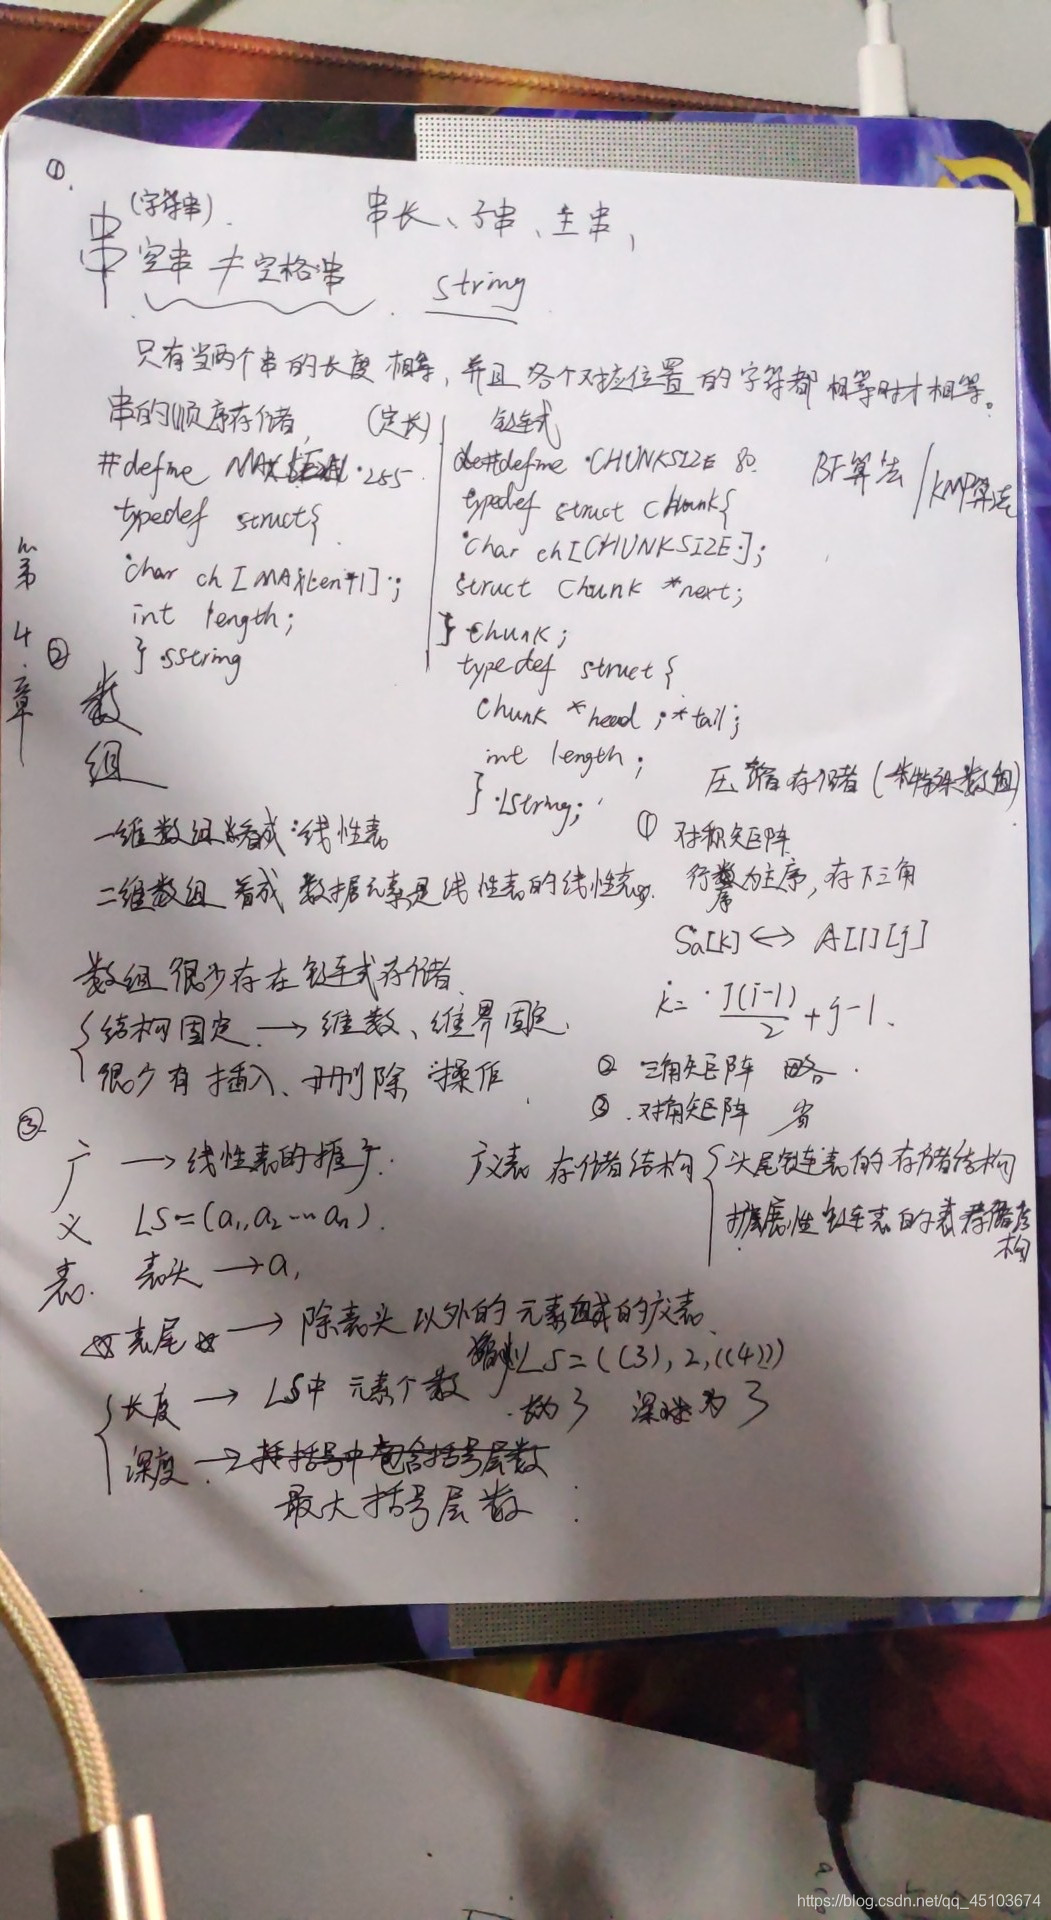 ①.
串 (字符串). 串长、子串、主串,
空串 ≠ 空格串 string
只有当两个串的长度相等,并且各个对应位置的字符都相等时才相等。
串的顺序存储 (定长)
#define MAX 255
typedef struct{
char ch [MAXLen+1];
int length;
} sstring
链式
#define CHUNKSIZE 80
typedef struct Chunk{
char ch[CHUNKSIZE];
struct Chunk *next;
} Chunk;
typedef struct {
Chunk *head ; *tail;
int length ;
} Lstring;
BF算法 / KMP算法
第4章
②
数组
一维数组看成:线性表
二维数组 看成 数据元素是线性表的线性表.
数组很少存在链式存储.
{结构固定 → 维数、维界固定.
很少有插入、删除操作.
压缩存储 (特殊数组)
① 对称矩阵
行序为主序,存下三角
Sa[k] <-> A[i][j]
k= i(i-1)/2 + j-1.
② 三角矩阵 略.
③ 对角矩阵 省
③
广义表. → 线性表的推广.
LS=(a1,a2…an).
表头 → a1
☆表尾☆ → 除表头以外的元素组成的广义表.
{长度 → LS中元素个数
LS=((3),2,((4)))
长为3 深度为3
深度 → 括号中包含括号层数
最大括号层数.
广义表 存储结构 {头尾链表的存储结构
扩展性链表的存储结构
https://blog.csdn.net/qq_45103674